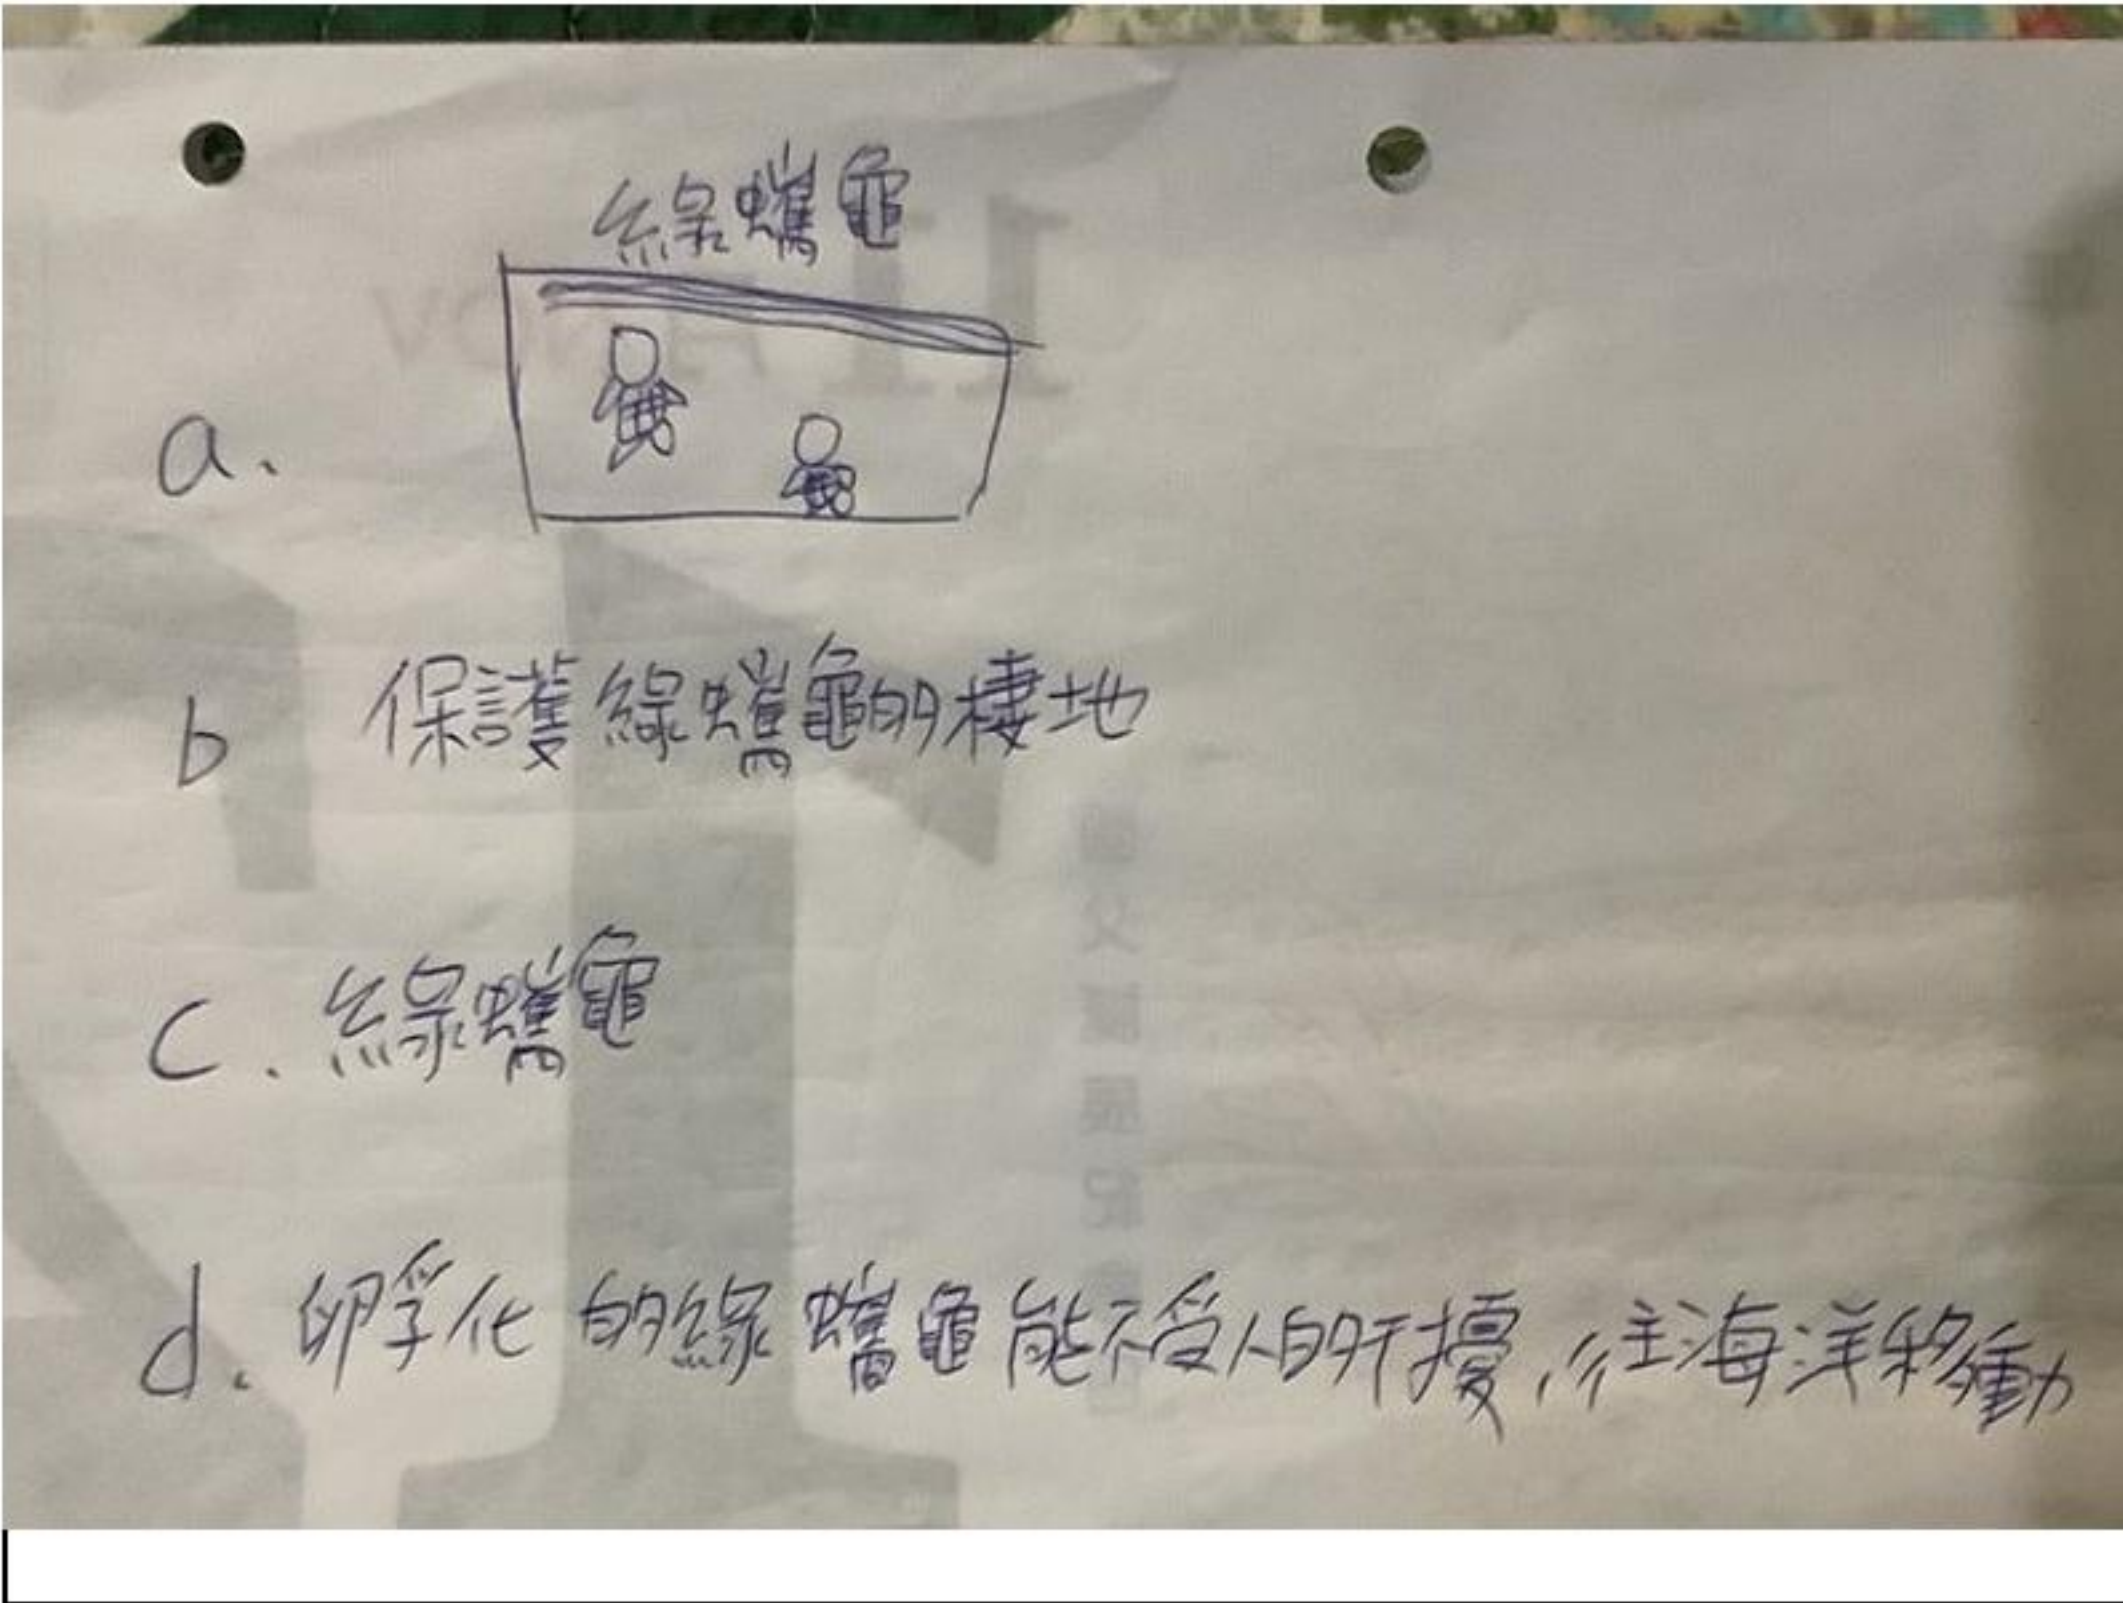 綠蠵龜
a.
b 保護綠蠵龜的棲地
c. 綠蠵龜
d. 卵孵化的綠蠵龜能不受人的干擾,往海洋移動